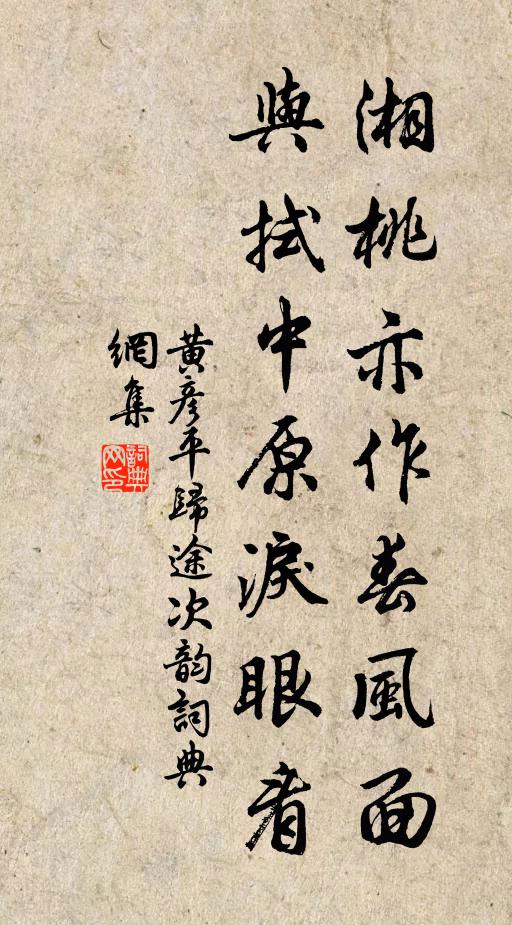 湘桃亦作春風面
與拭中原淚眼看
黃彥平歸途次韵詞典
網集
詞典
网印